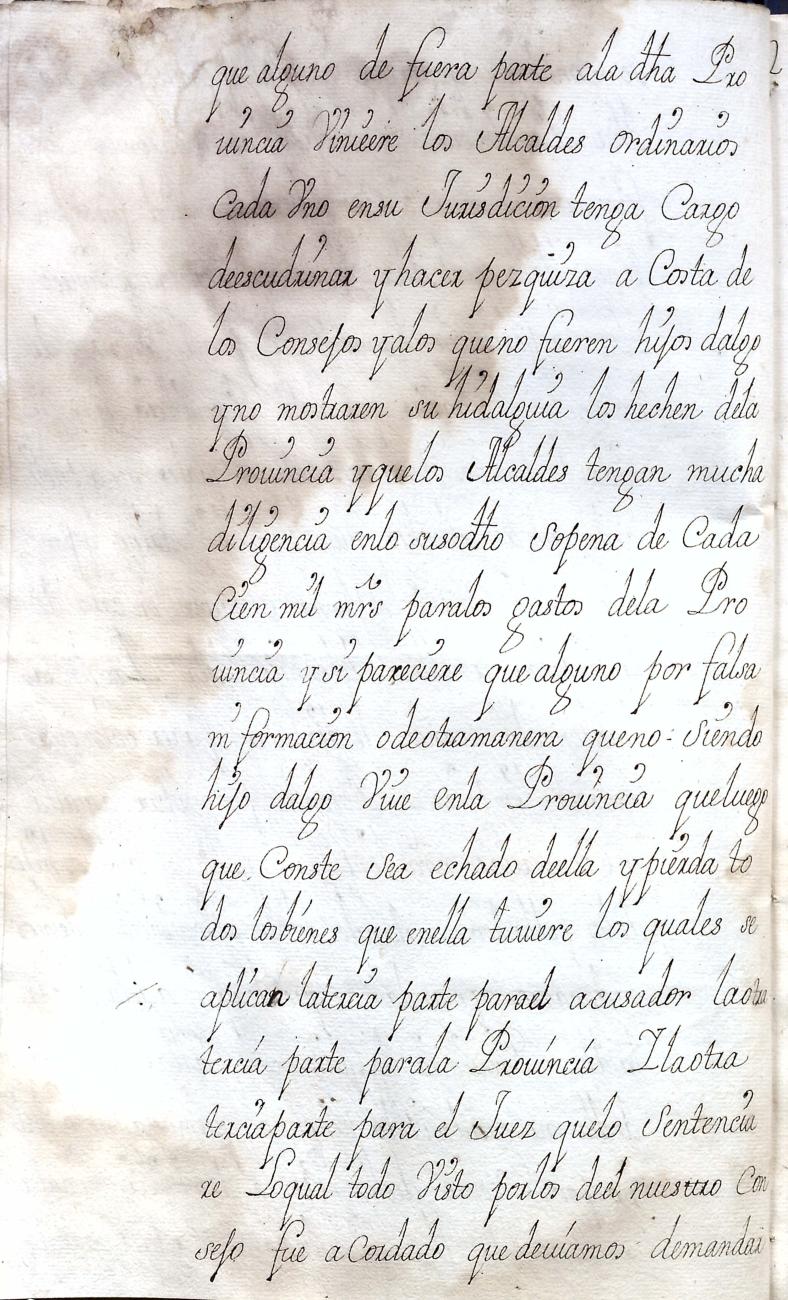 que alguno de fuera parte ala dha Pro
uincia Viniere los Alcaldes ordinarios
Cada Vno ensu Jurisdicion tenga Cargo
deescudrinar y hacer pezquiza a Costa de
los Consejos yalos queno fueren hijos dalgo
yno mostraren su hidalguia los hechen dela
Prouincia yquelos Alcaldes tengan mucha
diligencia enlo susodho Sopena de Cada
Cien mil mrs paralos gastos dela Pro
uincia y si pareciere que alguno por falsa
in formacion odeotramanera queno Siendo
hijo dalgo Viue enla Prouincia queluego
que Conste Sea echado deella ypierda to
dos losbienes que enella tuuiere los quales se
aplican latercia parte parael acusador laotra
tercia parte parala Prouincia Ylaotra
terciaparte para el Juez quelo Sentencia
re Loqual todo Visto porlos deel nuestro Con
sejo fue aCordado que deuiamos demandar